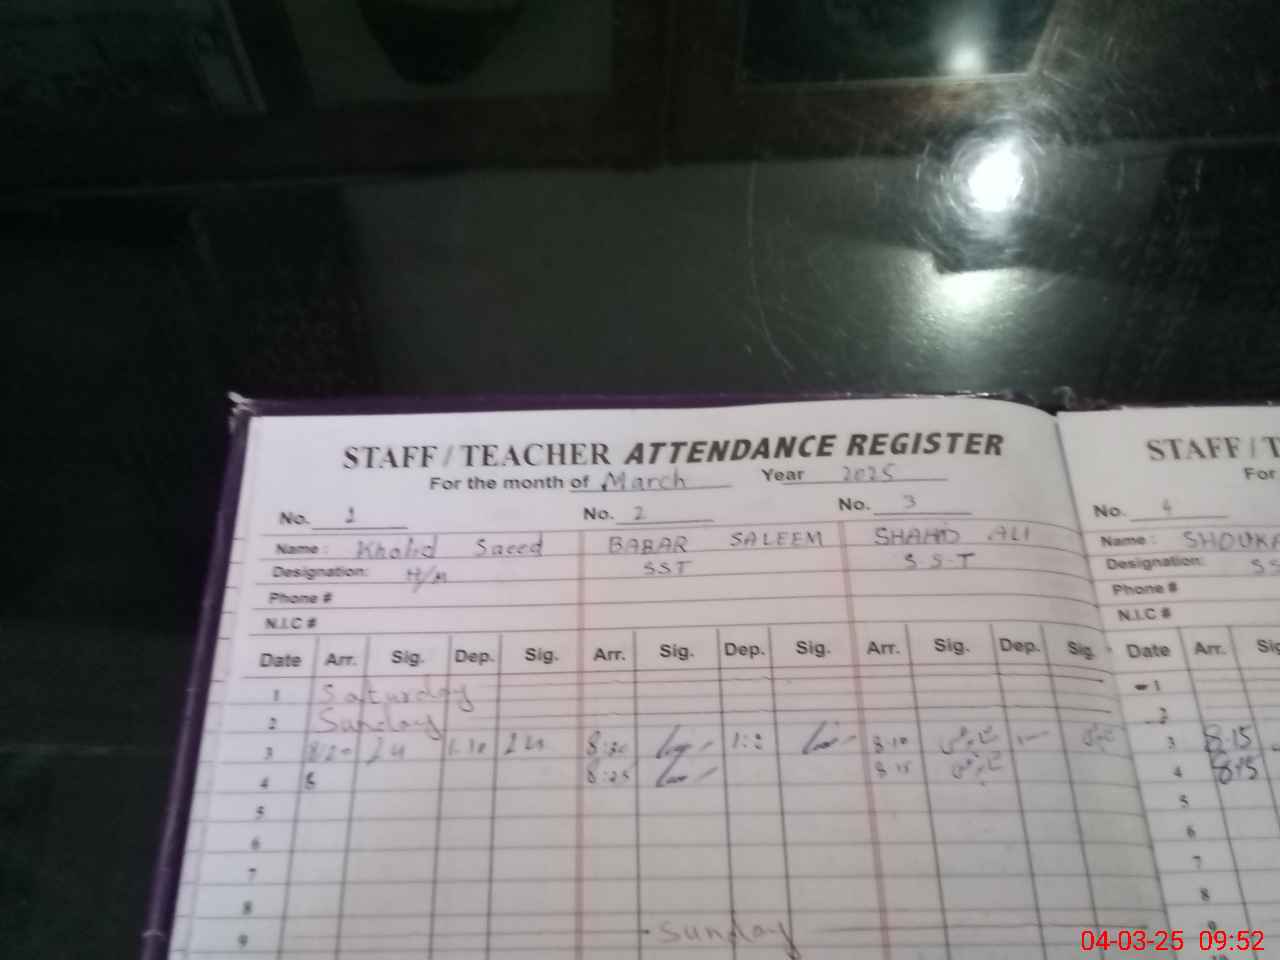 STAFF / TEACHER ATTENDANCE REGISTER
For the month of March Year 2025
No. 1 No. 2 No. 3
Name: Khalid Saeed BABAR SALEEM SHAHID ALI
Designation: H/M SST S.S.T
Phone #
N.I.C #
Date Arr. Sig. Dep. Sig. Arr. Sig. Dep. Sig. Arr. Sig. Dep. Sig.
1 Saturday
2 Sunday
3 8:20 1:10 8:20 8:10
4 8 8:25 8:15
5
6
7
8
9 Sunday
STAFF / T
For
No. 4
Name: SHOUKA
Designation: SS
Phone #
N.I.C #
Date Arr. Sig
1
2
3 8:15
4 8:15
5
6
7
8
9
10
04-03-25 09:52